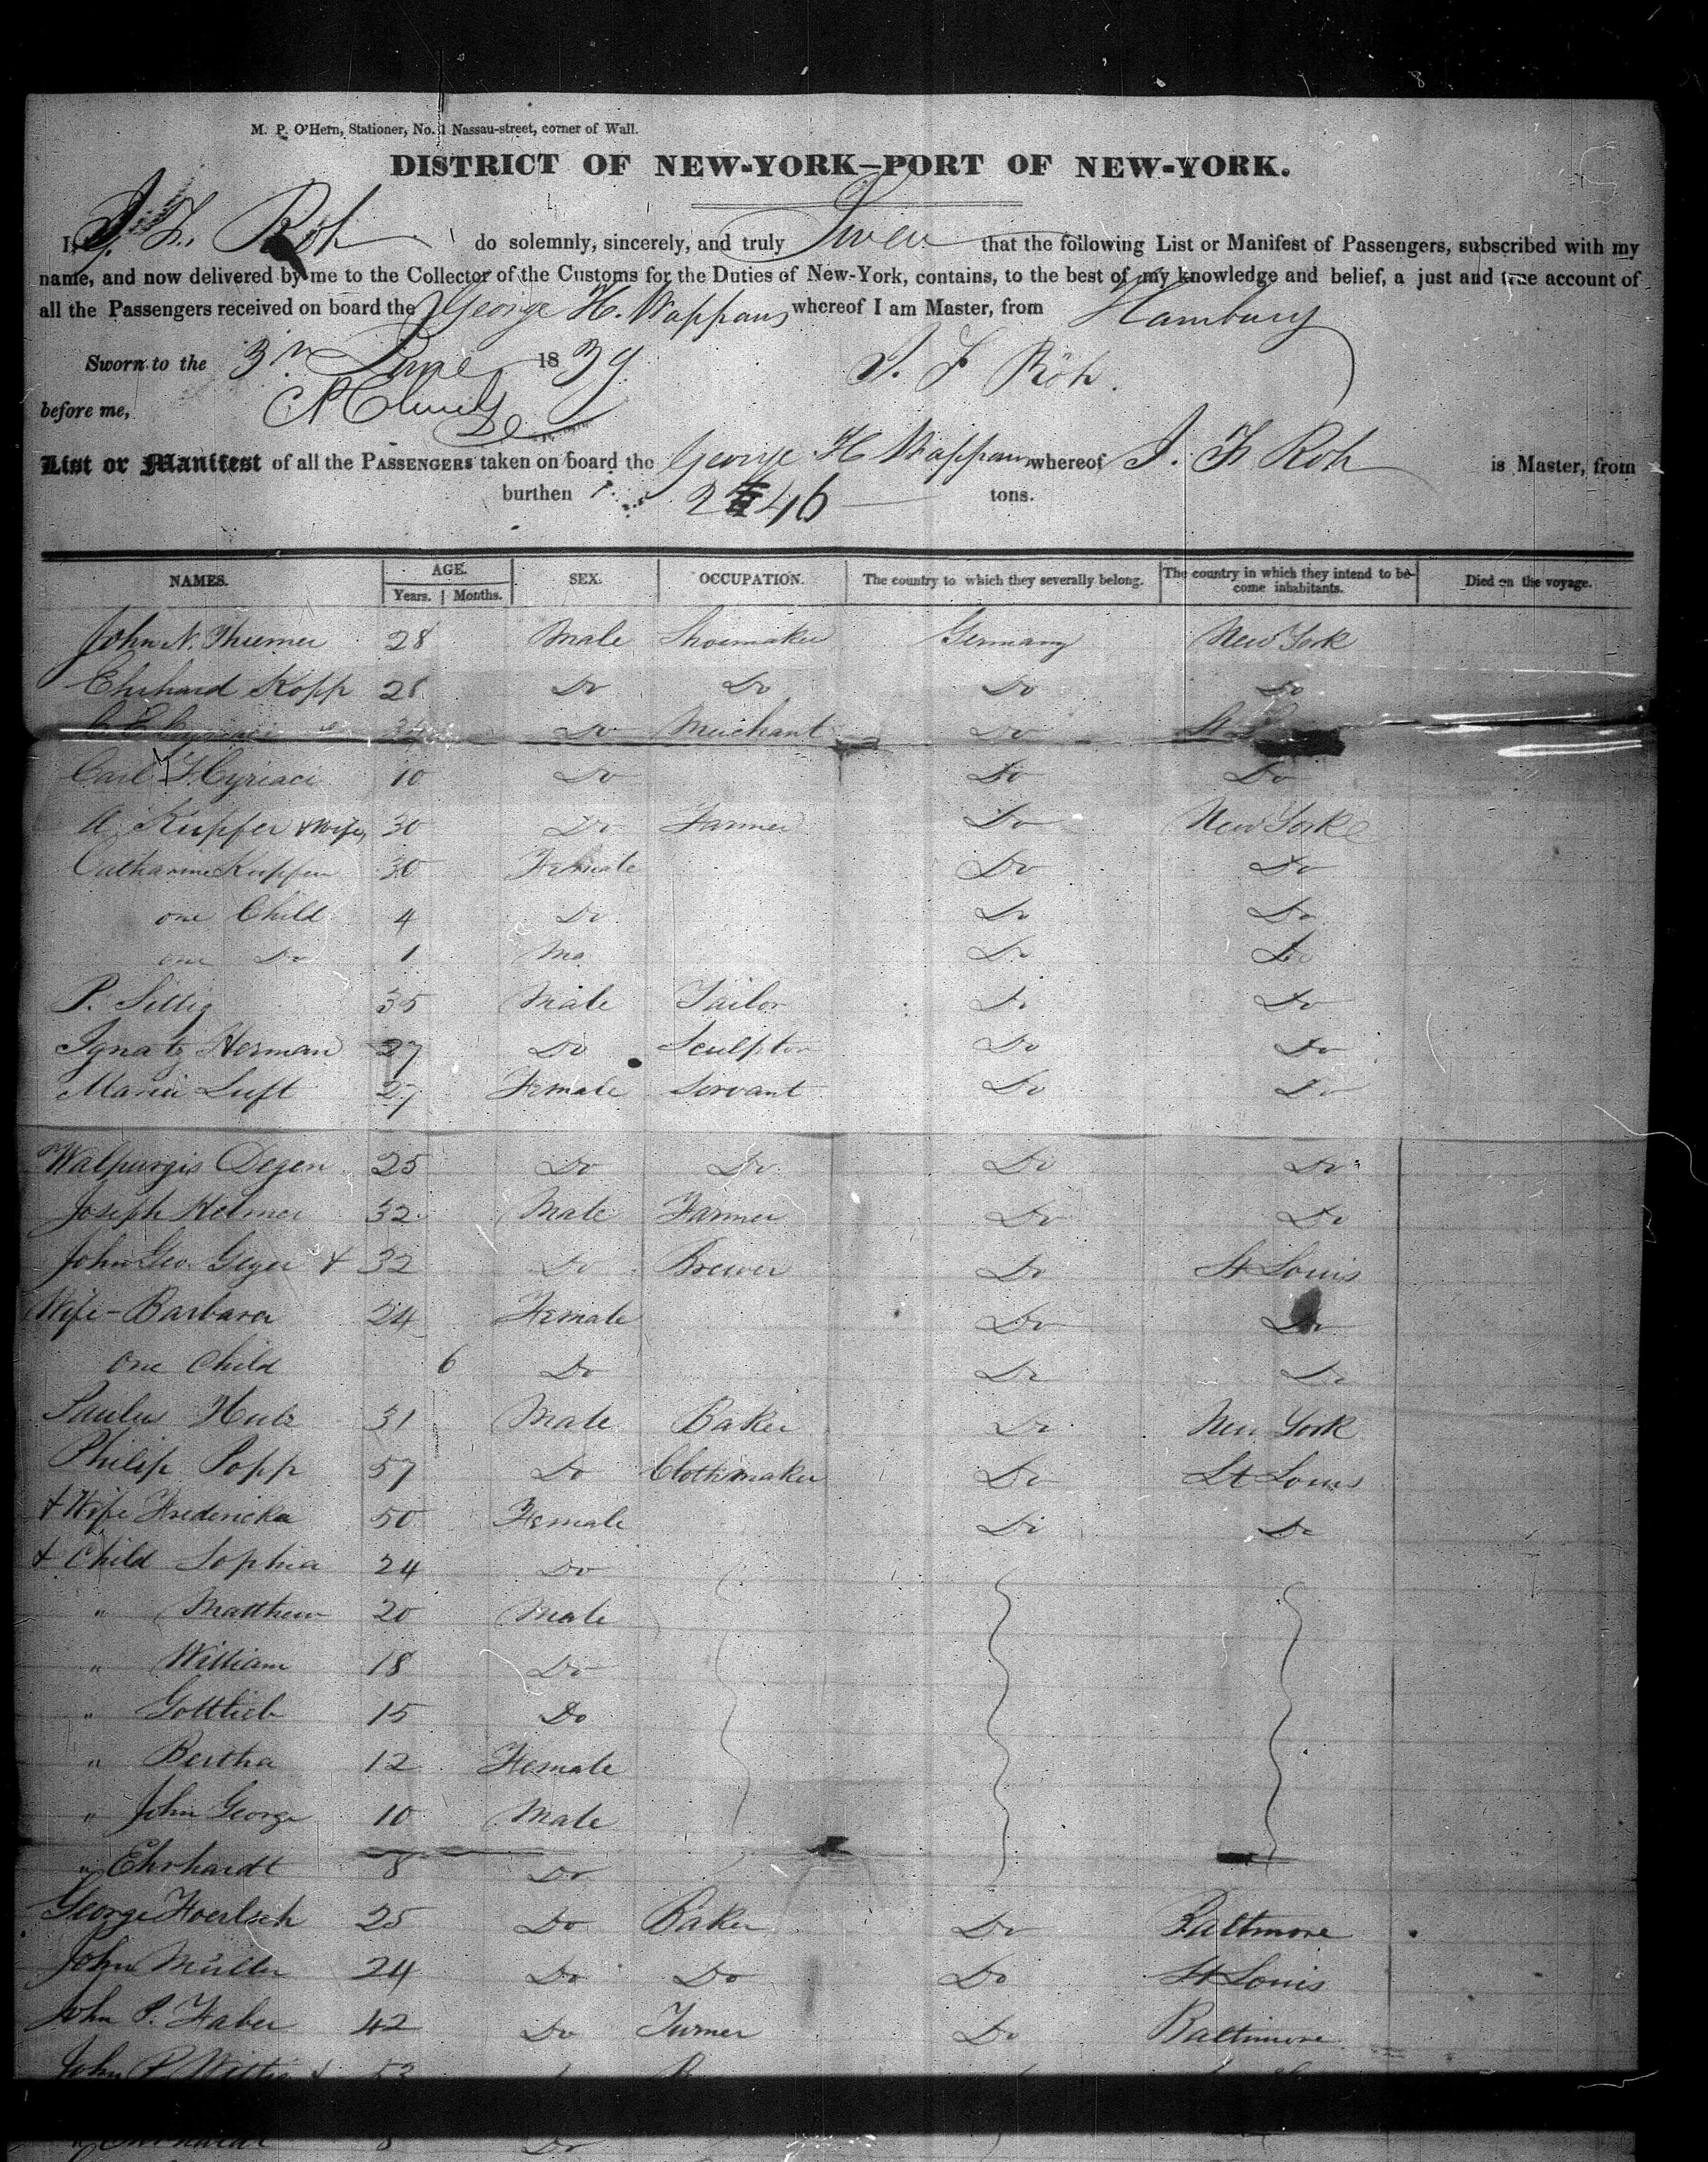 M. P. O'Hern, Stationer, No. 1 Nassau-street, corner of Wall.
DISTRICT OF NEW-YORK—PORT OF NEW-YORK.
I, J. F. Röh do solemnly, sincerely, and truly Swear that the following List or Manifest of Passengers, subscribed with my
name, and now delivered by me to the Collector of the Customs for the Duties of New-York, contains, to the best of my knowledge and belief, a just and true account of
all the Passengers received on board the George H. Wappaus whereof I am Master, from Hamburg
Sworn to the 3rd June 1839 J. F Röh.
before me,
List or Manifest of all the PASSENGERS taken on board the George H Wappaus whereof J. F Roh is Master, from
burthen 246 tons.
NAMES. AGE. SEX. OCCUPATION. The country to which they severally belong. The country in which they intend to become inhabitants. Died on the voyage.
Years. Months.
John N. Thiemer 28 Male Shoemaker Germany New York
Ehrhard Kopp 28 Do Do Do Do
Do Merchant Do
Carl F. Cyriaci 10 Do Do Do
A. Kupfer & Wife, 30 Do Farmer Do New York
Catharine Kupfer 30 Female Do Do
one Child 4 Do Do Do
one Do 1 Ma Do Do
P. Sittig 35 Male Tailor Do Do
Ignatz Herman 27 Do Sculptor Do Do
Maria Luft 27 Female Servant Do Do
Walpurgis Degen 25 Do Do Do Do
Joseph Helmer 32 Male Farmer Do Do
John Geo. Geyer & 32 Do Brewer Do St Louis
Wife - Barbara 24 Female Do Do
One Child 6 Do Do Do
Paulus 31 Male Baker Do New York
Philip Popp 57 Do Clothmaker Do St Louis
& Wife Fredericka 50 Female Do Do
& Child Sophia 24 Do
" Matthew 20 Male
" William 18 Do
" Gottlieb 15 Do
" Bertha 12 Female
" John George 10 Male
" Ehrhardt 8 Do
George Hoerlsch 25 Do Baker Do Baltimore
John Müller 24 Do Do Do St Louis
John P. Faber 42 Do Turner Do Baltimore
John P Wittig & 53
8 Do